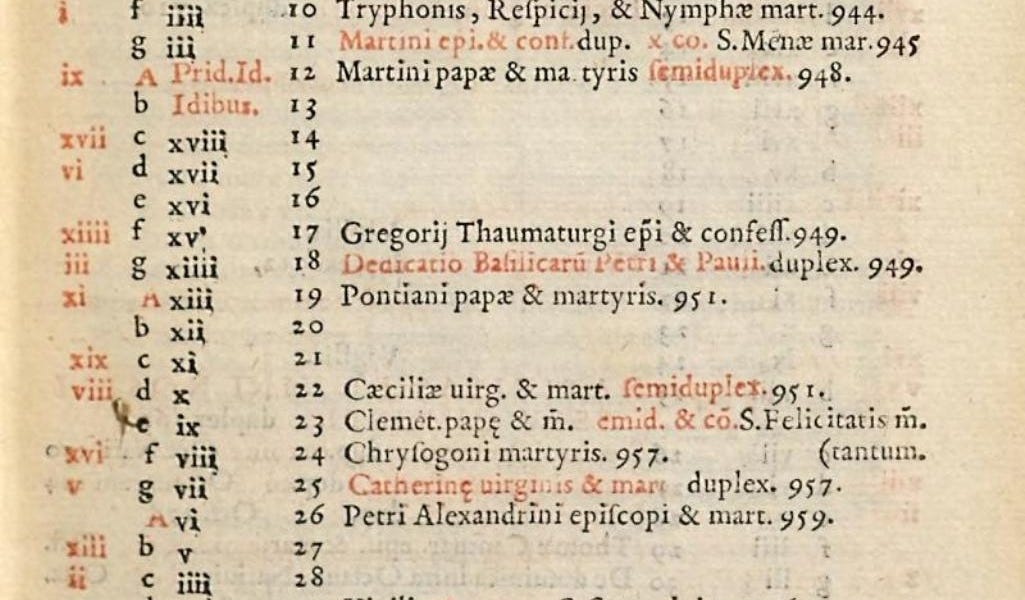 i f iiii 10 Tryphonis, Reſpicij, & Nymphæ mart. 944.
g iii 11 Martini epi. & conf. dup. x co. S. Menæ mar. 945
ix A Prid. Id. 12 Martini papæ & ma tyris ſemiduplex. 948.
b Idibus. 13
xvii c xviii 14
vi d xvii 15
e xvi 16
xiiii f xv 17 Gregorij Thaumaturgi ep̄i & confeſſ. 949.
iii g xiiii 18 Dedicatio Baſilicarū Petri & Pauli. duplex. 949.
xi A xiii 19 Pontiani papæ & martyris. 951.
b xii 20
xix c xi 21
viii d x 22 Cæciliæ uirg. & mart. ſemiduplex. 951.
e ix 23 Clemēt. papę & m̄. emid. & cō. S. Felicitatis m̄.
xvi f viii 24 Chryſogoni martyris. 957. (tantum.
v g vii 25 Catherinę uirginis & mart duplex. 957.
A vi 26 Petri Alexandrini epiſcopi & mart. 959.
xiii b v 27
ii c iiii 28